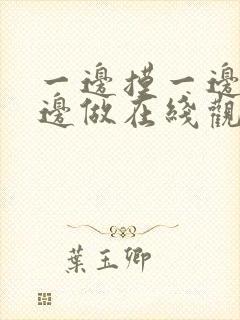 一邊摸一邊
邊做在綫觀
葉玉卿